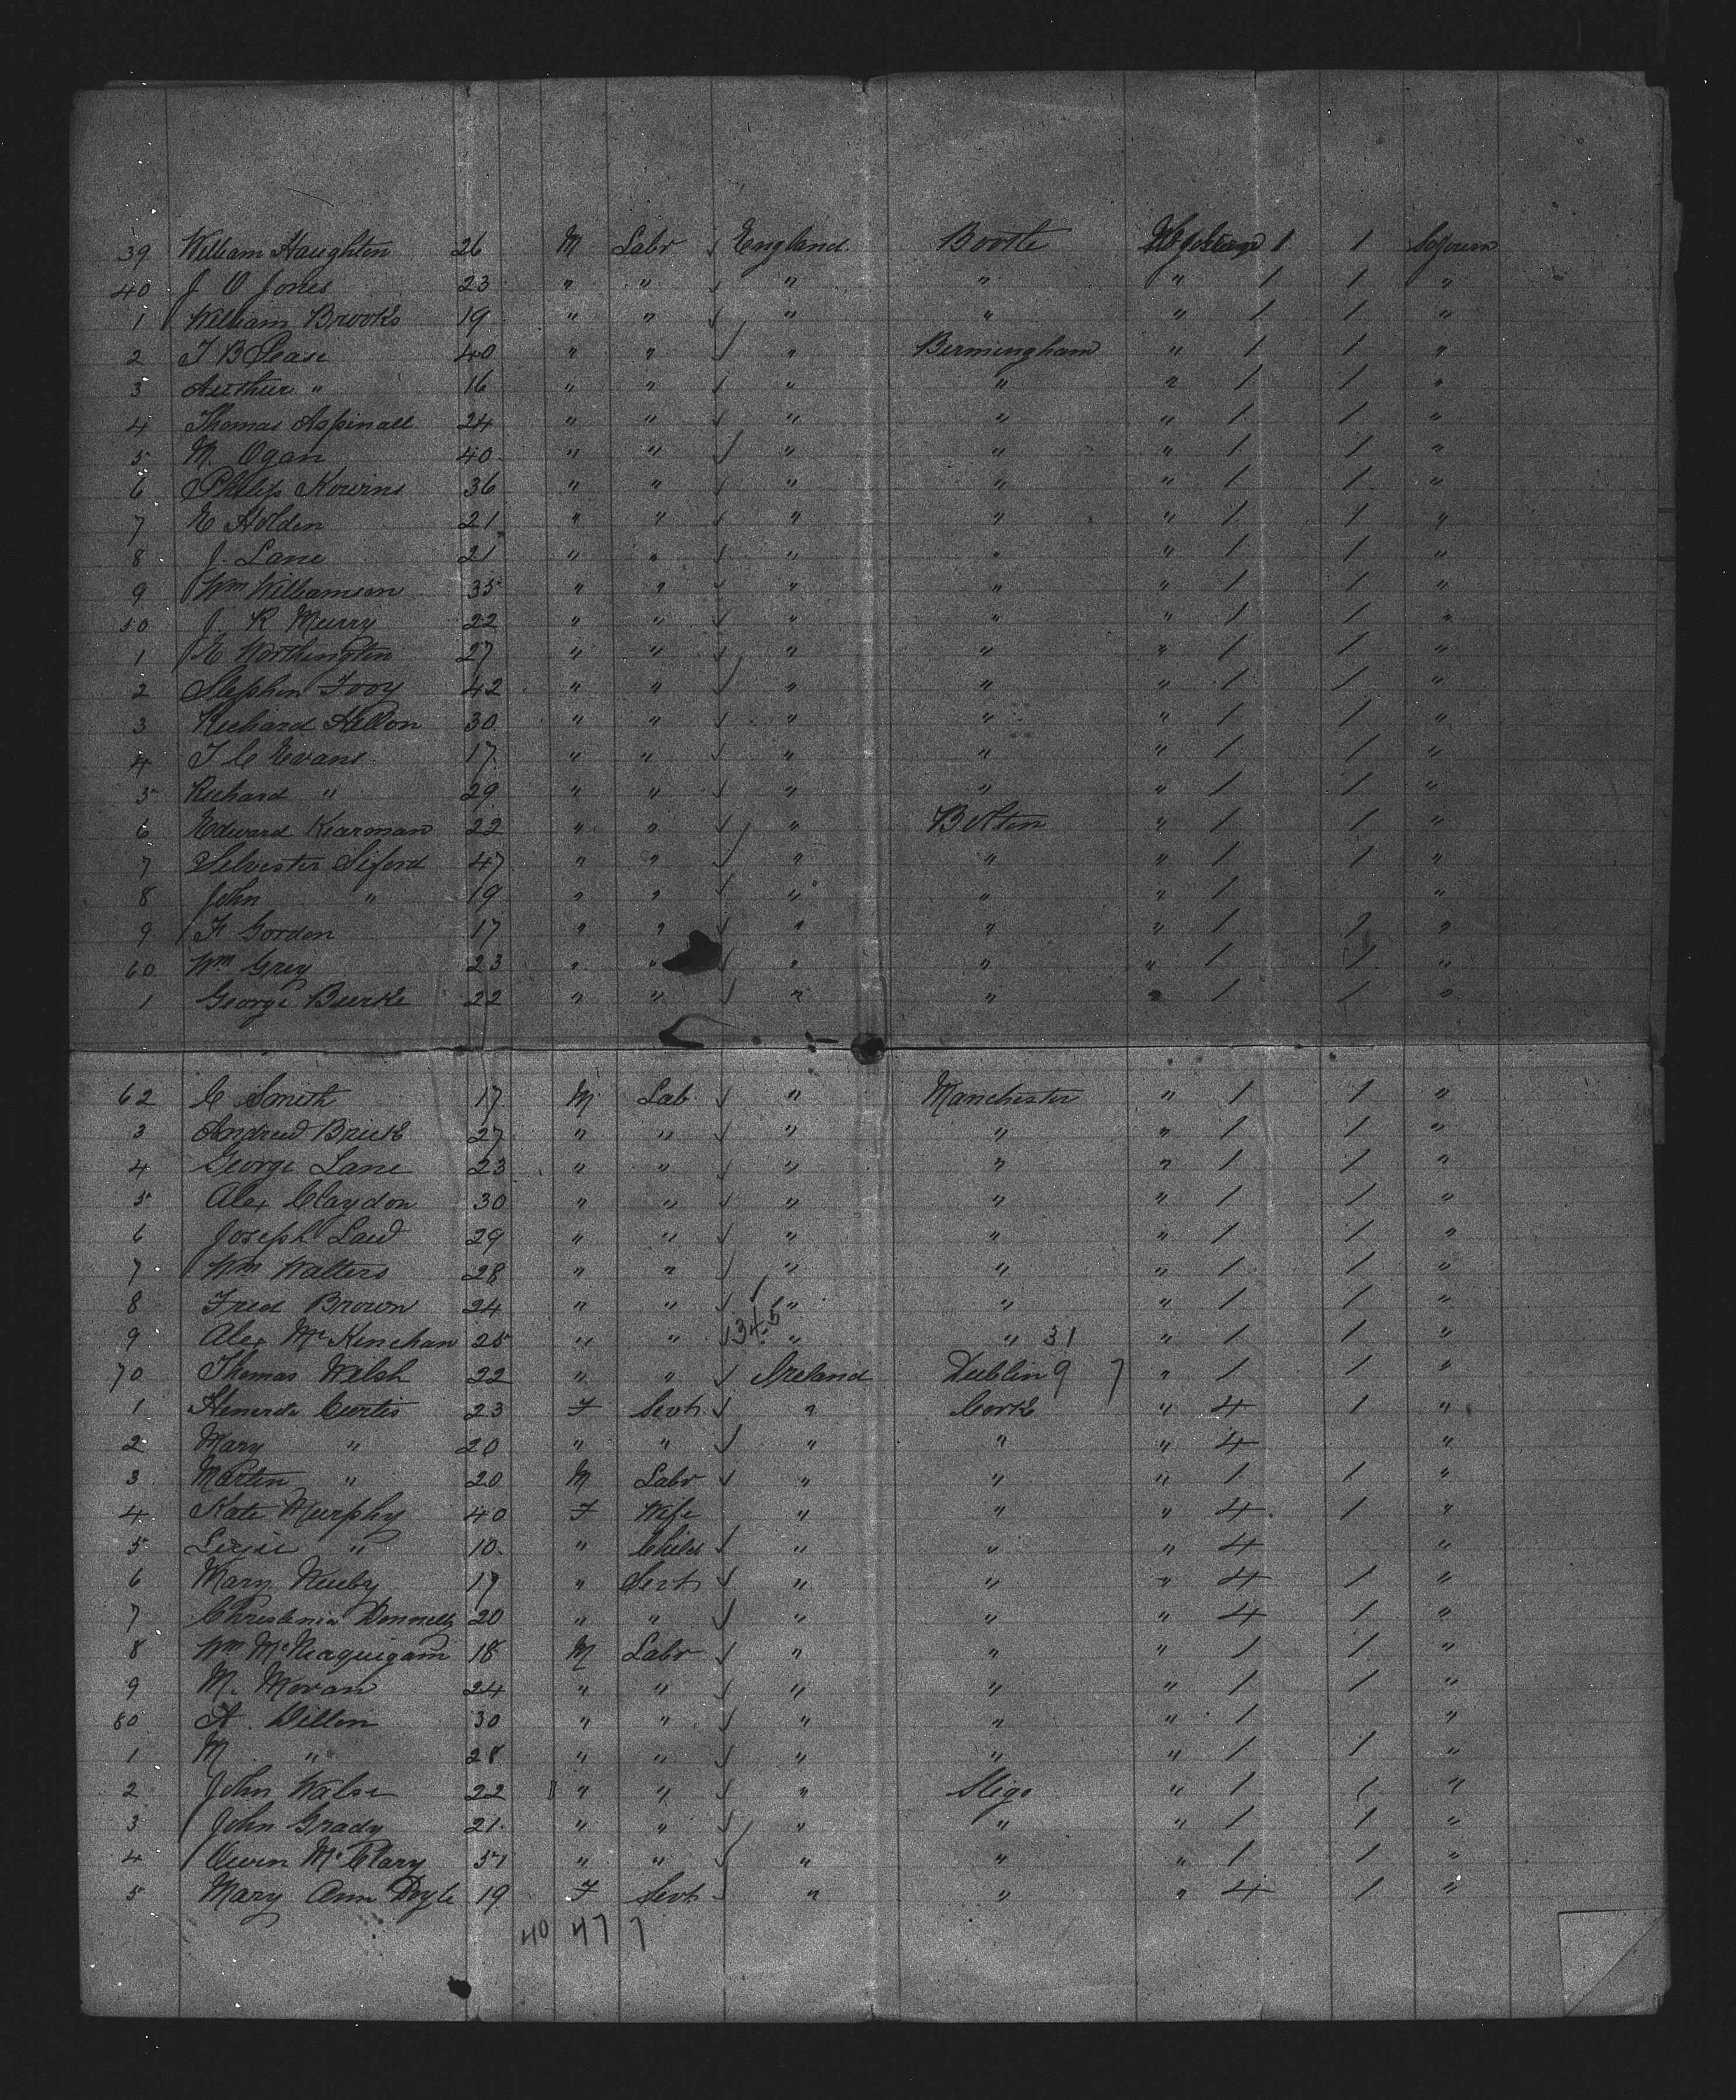 39 William Haughton 26 M Labr √ England Bootle 1 1 Sojourn
40 J O Jones 23 " " √ " " " 1 1 "
1 William Brooks 19 " " √ " " " 1 1 "
2 T B Pease 40 " " √ " Birmingham " 1 1 "
3 Arthur " 16 " " √ " " " 1 1 "
4 Thomas Aspinall 24 " " √ " " " 1 1 "
5 M. Ogan 40 " " √ " " " 1 1 "
6 Philip 36 " " √ " " " 1 1 "
7 E Holden 21 " " √ " " " 1 1 "
8 J. Lane 21 " " √ " " " 1 1 "
9 Wm Williamson 35 " " √ " " " 1 1 "
50 J. R Murry 22 " " √ " " " 1 1 "
1 E Worthington 27 " " √ " " " 1 1 "
2 Stephen 42 " " √ " " " 1 1 "
3 Richard Hilton 30 " " √ " " " 1 1 "
4 T C Evans 17 " " √ " " " 1 1 "
5 Richard " 29 " " √ " " " 1 1 "
6 Edward Kearman 22 " " √ " Bolton " 1 1 "
7 Silvester Siford 47 " " √ " " " 1 1 "
8 John " 19 " " √ " " " 1 "
9 F Gordon 17 " " √ " " " 1 1 "
60 Wm Grey 23 " " √ " " " 1 1 "
1 George Burke 22 " " √ " " " 1 1 "
62 C Smith 17 M Lab. √ " Manchester " 1 1 "
3 Andrew 27 " " √ " " " 1 1 "
4 George Lane 23 " " √ " " " 1 1 "
5 Alex Claydon 30 " " √ " " " 1 1 "
6 Joseph 29 " " √ " " " 1 1 "
7 Wm Walters 28 " " √ " " " 1 1 "
8 Fred Brown 24 " " √ " " " 1 1 "
9 Alex Mc Kinchan 25 " " √ 345 " " 31 " 1 1 "
70 Thomas Welsh 22 " " √ Ireland Dublin 9 7 " 1 1 "
1 Curtis 23 F Servt √ " Cork " 4 1 "
2 Mary " 20 " " √ " " " 4 "
3 Martin " 20 M Labr √ " " " 1 1 "
4 Kate Murphy 40 F Wife " " " 4 1 "
5 Lizzie " 10 " Child √ " " " 4 "
6 Mary 17 " Servt √ " " " 4 1 "
7 Christenia Donnelly 20 " " √ " " " 4 1 "
8 Wm 18 M Labr √ " " " 1 1 "
9 M. Moran 24 " " √ " " " 1 1 "
80 A. Dillon 30 " " √ " " " 1 "
1 M " 28 " " √ " " " 1 1 "
2 John Walsi 22 " " √ " Sligo " 1 1 "
3 John Grady 21 " " √ " " " 1 1 "
4 Owen Mc Clary " " √ " " " 1 1 "
5 Mary Ann Doyle 19 F Servt √ " " " 4 1 "
40 47 7